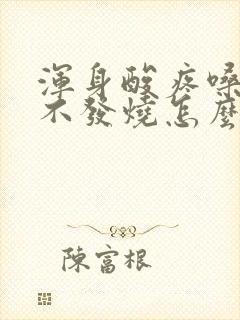 渾身酸疼嗓
不發燒怎麼
陳富根